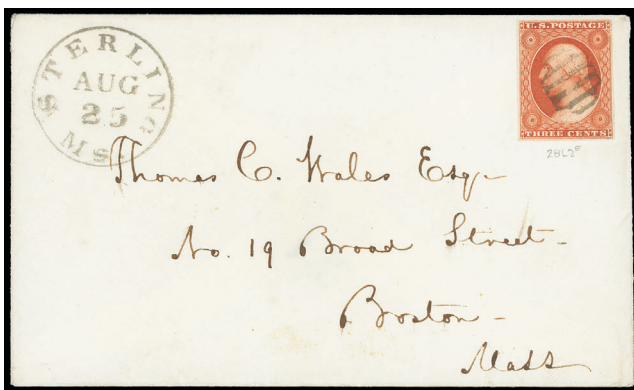 STERLING
AUG
25
Ms.
U.S. POSTAGE
THREE CENTS
28L2E
Thomas C. Wales Esq-
No. 19 Broad Street-
Boston-
Mass